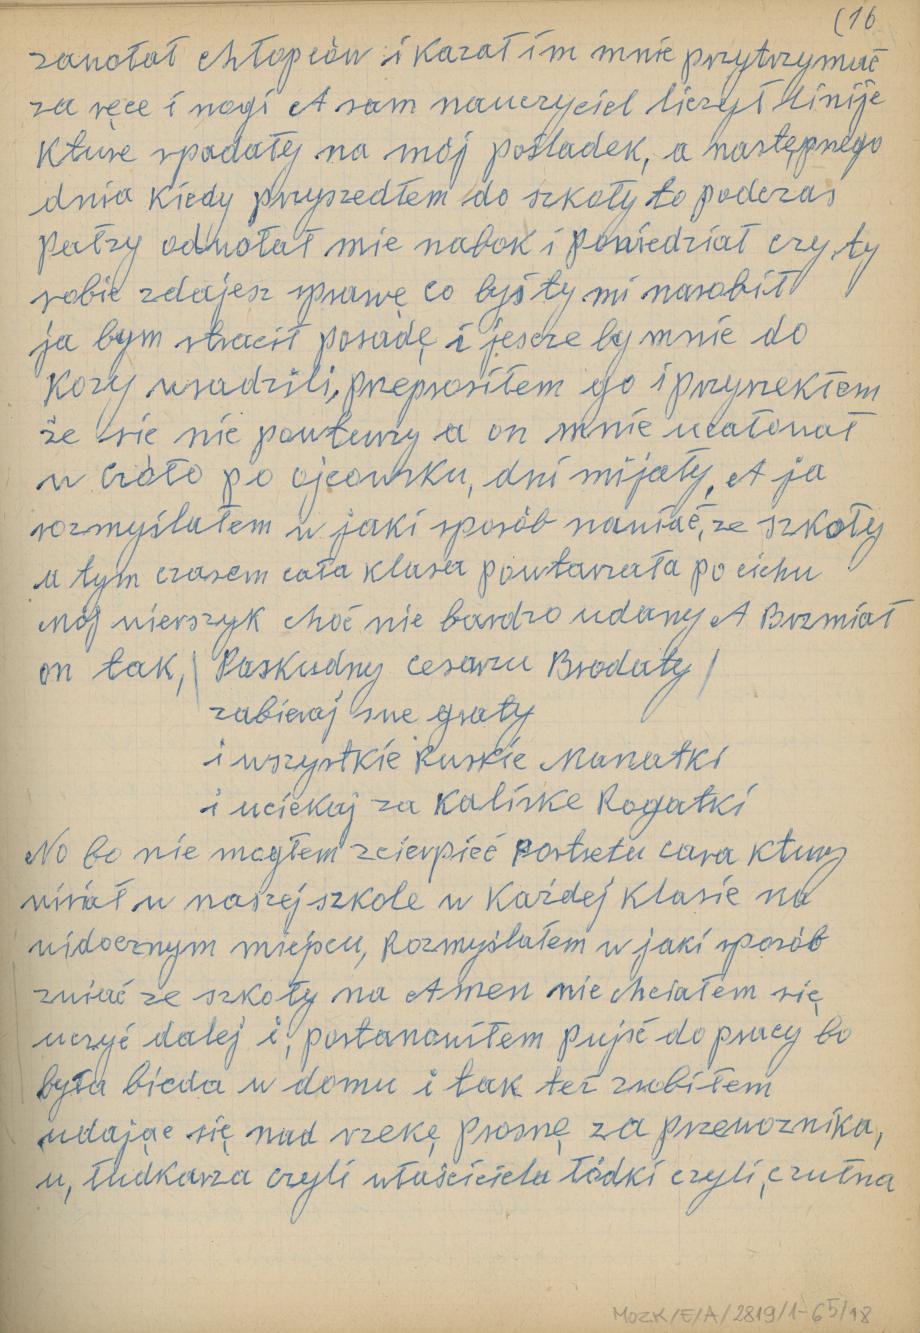 (16
zawołał chłopców i kazał im mnie przytrzymać
za ręce i nogi A sam nauczyciel liczył linije
kture spadały na mój pośladek, a następnego
dnia kiedy przyszedłem do szkoły to podczas
pałzy odwołał mie nabok i powiedział czy ty
sobie zdajesz sprawę co byś ty mi narobił
ja bym stracił posadę i jescze by mnie do
kozy wsadzili, przeprosiłem go i przyrekłem
że sie nie powturzy a on mnie ucałował
w czoło po ojcowsku, dni mijały, A ja
rozmyślałem w jaki sposób nawiać, ze szkoły
a tym czasem cała klasa powtarzała po cichu
mój wierszyk choć nie bardzo udany A Brzmiał
on tak, / Paskudny cesarzu Brodaty /
zabieraj swe graty
i wszystkie Ruskie Manatki
i uciekaj za Kaliske Rogatki
No bo nie mogłem zcierpieć Portretu cara ktury
wisiał w naszej szkole w każdej klasie na
widocznym miejscu, Rozmyślałem w jaki sposób
zwiać ze szkoły na Amen nie chciałem się
uczyć dalej i, postanowiłem pujść do pracy bo
była bieda w domu i tak też zrobiłem
udając się nad rzekę prosnę za przewoznika,
u, łudkarza czyli właściciela łódki czyli, czułna
MOZK/E/A/2819/1-65/18